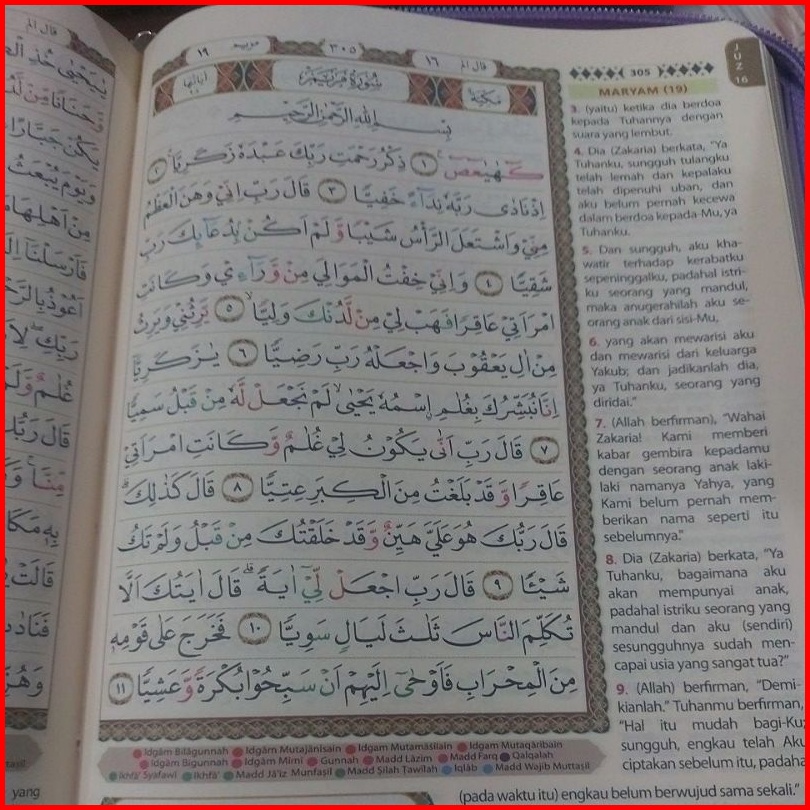 قال الم
يٰيَحْيٰى خُذِ
وَيَوْمَ يُبْعَثُ
مِنْ اَهْلِهَا
فَاَرْسَلْنَآ
رَبِّكِ
قَالَ
قَالَتْ
١٩ مريم ٣٠٥ قال الم ١٦
سُوْرَةُ مَرْيَمَ
مَكِّيَّةٌ
بِسْمِ اللّٰهِ الرَّحْمٰنِ الرَّحِيْمِ
كۤهٰيٰعۤصۤ ۚ ١ ذِكْرُ رَحْمَتِ رَبِّكَ عَبْدَهٗ زَكَرِيَّا ۚ ٢
اِذْ نَادٰى رَبَّهٗ نِدَاۤءً خَفِيًّا ٣ قَالَ رَبِّ اِنِّيْ وَهَنَ الْعَظْمُ
مِنِّيْ وَاشْتَعَلَ الرَّأْسُ شَيْبًا وَّلَمْ اَكُنْۢ بِدُعَاۤىِٕكَ رَبِّ
شَقِيًّا ٤ وَاِنِّيْ خِفْتُ الْمَوَالِيَ مِنْ وَّرَاۤءِيْ وَكَانَتِ
امْرَاَتِيْ عَاقِرًا فَهَبْ لِيْ مِنْ لَّدُنْكَ وَلِيًّا ۙ ٥ يَّرِثُنِيْ وَيَرِثُ
مِنْ اٰلِ يَعْقُوْبَ وَاجْعَلْهُ رَبِّ رَضِيًّا ٦ يٰزَكَرِيَّآ
اِنَّا نُبَشِّرُكَ بِغُلٰمِ ِۨاسْمُهٗ يَحْيٰىۙ لَمْ نَجْعَلْ لَّهٗ مِنْ قَبْلُ سَمِيًّا
٧ قَالَ رَبِّ اَنّٰى يَكُوْنُ لِيْ غُلٰمٌ وَّكَانَتِ امْرَاَتِيْ
عَاقِرًا وَّقَدْ بَلَغْتُ مِنَ الْكِبَرِ عِتِيًّا ٨ قَالَ كَذٰلِكَۚ
قَالَ رَبُّكَ هُوَ عَلَيَّ هَيِّنٌ وَّقَدْ خَلَقْتُكَ مِنْ قَبْلُ وَلَمْ تَكُ
شَيْـًٔا ٩ قَالَ رَبِّ اجْعَلْ لِّيْٓ اٰيَةً ۗ قَالَ اٰيَتُكَ اَلَّا
تُكَلِّمَ النَّاسَ ثَلٰثَ لَيَالٍ سَوِيًّا ١٠ فَخَرَجَ عَلٰى قَوْمِهٖ
مِنَ الْمِحْرَابِ فَاَوْحٰٓى اِلَيْهِمْ اَنْ سَبِّحُوْا بُكْرَةً وَّعَشِيًّا ١١
JUZ 16
305
MARYAM (19)
3. (yaitu) ketika dia berdoa
kepada Tuhannya dengan
suara yang lembut.
4. Dia (Zakaria) berkata, "Ya
Tuhanku, sungguh tulangku
telah lemah dan kepalaku
telah dipenuhi uban, dan
aku belum pernah kecewa
dalam berdoa kepada-Mu, ya
Tuhanku.
5. Dan sungguh, aku kha-
watir terhadap kerabatku
sepeninggalku, padahal istri-
ku seorang yang mandul,
maka anugerahilah aku se-
orang anak dari sisi-Mu,
6. yang akan mewarisi aku
dan mewarisi dari keluarga
Yakub; dan jadikanlah dia,
ya Tuhanku, seorang yang
diridai."
7. (Allah berfirman), "Wahai
Zakaria! Kami memberi
kabar gembira kepadamu
dengan seorang anak laki-
laki namanya Yahya, yang
Kami belum pernah mem-
berikan nama seperti itu
sebelumnya."
8. Dia (Zakaria) berkata, "Ya
Tuhanku, bagaimana aku
akan mempunyai anak,
padahal istriku seorang yang
mandul dan aku (sendiri)
sesungguhnya sudah men-
capai usia yang sangat tua?"
9. (Allah) berfirman, "Demi-
kianlah." Tuhanmu berfirman,
"Hal itu mudah bagi-Ku;
sungguh, engkau telah Aku
ciptakan sebelum itu, padaha
(pada waktu itu) engkau belum berwujud sama sekali."
Idgām Bilāgunnah Idgām Mutajānisain Idgam Mutamāṡilain Idgam Mutaqāribain
Idgām Bigunnah Idgām Mimi Gunnah Madd Lāzim Madd Farq Qalqalah
Ikhfā' Syafawi Ikhfā' Madd Jā'iz Munfaṣil Madd Ṣilah Ṭawīlah Iqlāb Madd Wajib Muttaṣil
yang